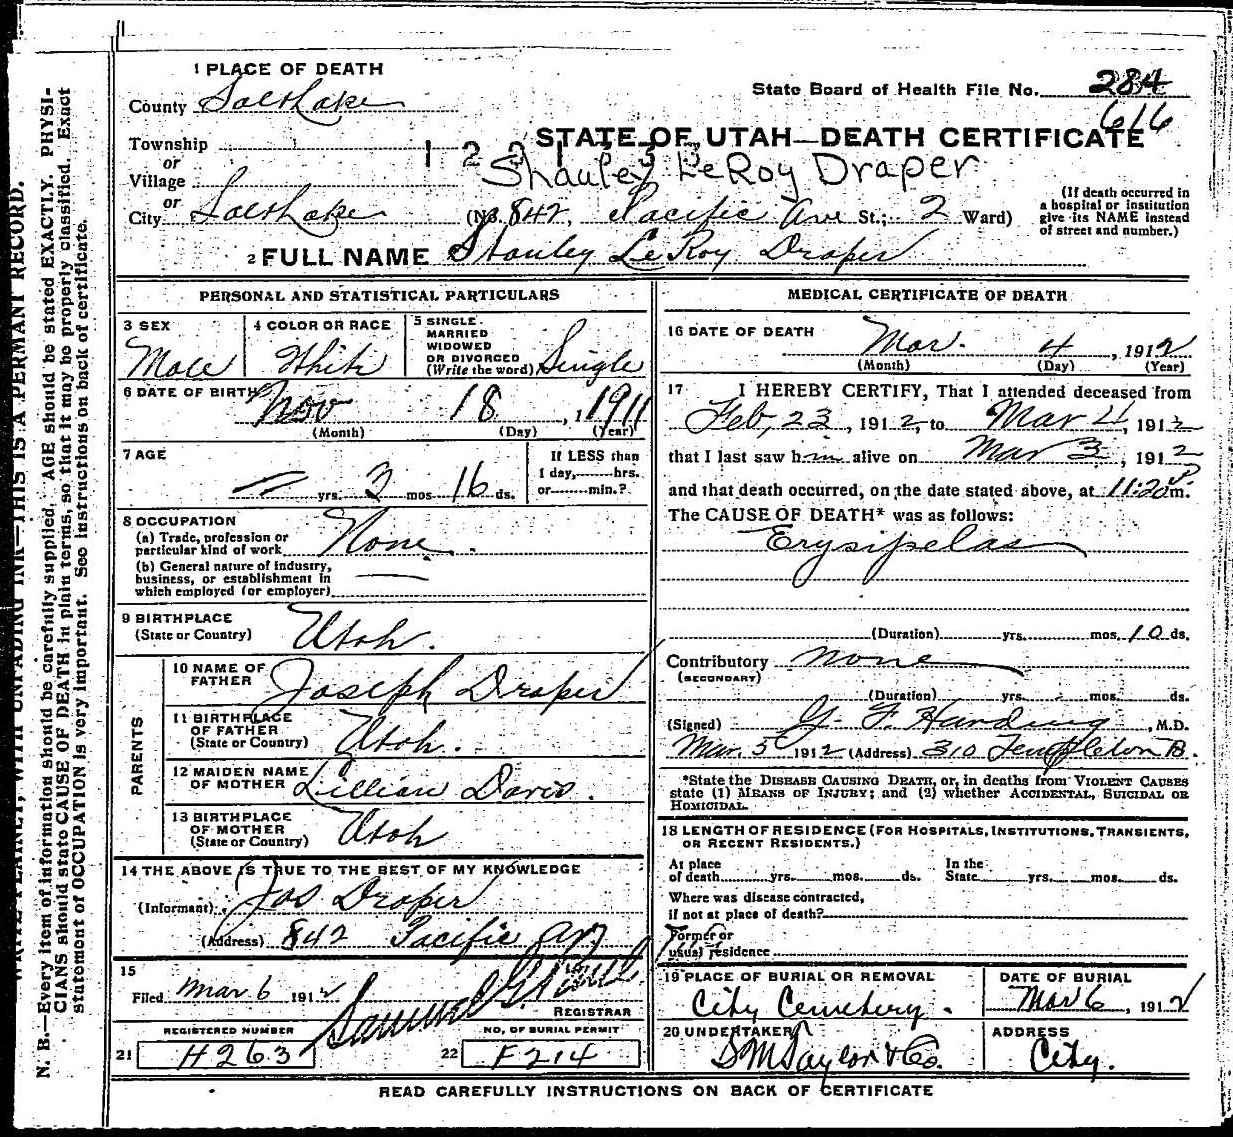 1 PLACE OF DEATH
County Salt Lake
State Board of Health File No. 284
616
Township
or
Village
or
STATE OF UTAH—DEATH CERTIFICATE
Stanley LeRoy Draper
City Salt Lake (No. 842, Pacific Ave St.; 2 Ward)
(If death occurred in
a hospital or institution
give its NAME instead
of street and number.)
2 FULL NAME Stanley LeRoy Draper
PERSONAL AND STATISTICAL PARTICULARS
3 SEX
Male
4 COLOR OR RACE
White
5 SINGLE
MARRIED
WIDOWED
OR DIVORCED
(Write the word) Single
6 DATE OF BIRTH
Nov 18, 1911
(Month) (Day) (Year)
7 AGE
— yrs. 3 mos 16 ds.
If LESS than
1 day, hrs.
or min.?
8 OCCUPATION
(a) Trade, profession or
particular kind of work None
(b) General nature of industry,
business, or establishment in
which employed (or employer)
9 BIRTHPLACE
(State or Country) Utah.
PARENTS
10 NAME OF
FATHER Joseph Draper
11 BIRTHPLACE
OF FATHER
(State or Country) Utah.
12 MAIDEN NAME
OF MOTHER Lillian Davis.
13 BIRTHPLACE
OF MOTHER
(State or Country) Utah
14 THE ABOVE IS TRUE TO THE BEST OF MY KNOWLEDGE
(Informant) Jos Draper
(Address) 842 Pacific Av
15
Filed Mar 6 1912
REGISTRAR
REGISTERED NUMBER
21 H263
NO. OF BURIAL PERMIT
22 F214
MEDICAL CERTIFICATE OF DEATH
16 DATE OF DEATH
Mar. 4, 1912
(Month) (Day) (Year)
17 I HEREBY CERTIFY, That I attended deceased from
Feb, 23, 1912, to Mar 4, 1912
that I last saw him alive on Mar 3, 1912
and that death occurred, on the date stated above, at 11:20 P m.
The CAUSE OF DEATH* was as follows:
Erysipelas
(Duration) yrs. mos. 10 ds.
Contributory none
(SECONDARY)
(Duration) yrs. mos. ds.
(Signed) G. F. Harding, M.D.
Mar. 5 1912 (Address) 310 Templeton B.
*State the DISEASE CAUSING DEATH, or, in deaths from VIOLENT CAUSES
state (1) MEANS OF INJURY; and (2) whether ACCIDENTAL, SUICIDAL OR
HOMICIDAL.
18 LENGTH OF RESIDENCE (FOR HOSPITALS, INSTITUTIONS, TRANSIENTS,
OR RECENT RESIDENTS.)
At place
of death yrs. mos. ds.
In the
State yrs. mos. ds.
Where was disease contracted,
if not at place of death?
Former or
usual residence
19 PLACE OF BURIAL OR REMOVAL
City Cemetery.
DATE OF BURIAL
Mar 6, 1912
20 UNDERTAKER
S M Taylor & Co.
ADDRESS
City.
READ CAREFULLY INSTRUCTIONS ON BACK OF CERTIFICATE
N. B.—Every item of information should be carefully supplied. AGE should be stated EXACTLY. PHYSI-
CIANS should state CAUSE OF DEATH in plain terms, so that it may be properly classified. Exact
statement of OCCUPATION is very important. See instructions on back of certificate.
WRITE PLAINLY, WITH UNFADING INK—THIS IS A PERMANT RECORD.